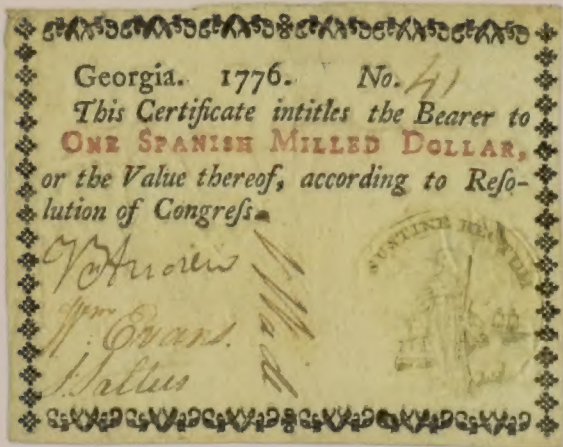 Georgia. 1776. No. 41
This Certificate intitles the Bearer to
ONE SPANISH MILLED DOLLAR,
or the Value thereof, according to Reſo-
lution of Congreſs.
SUSTINE RECTUM
Wm Evans.